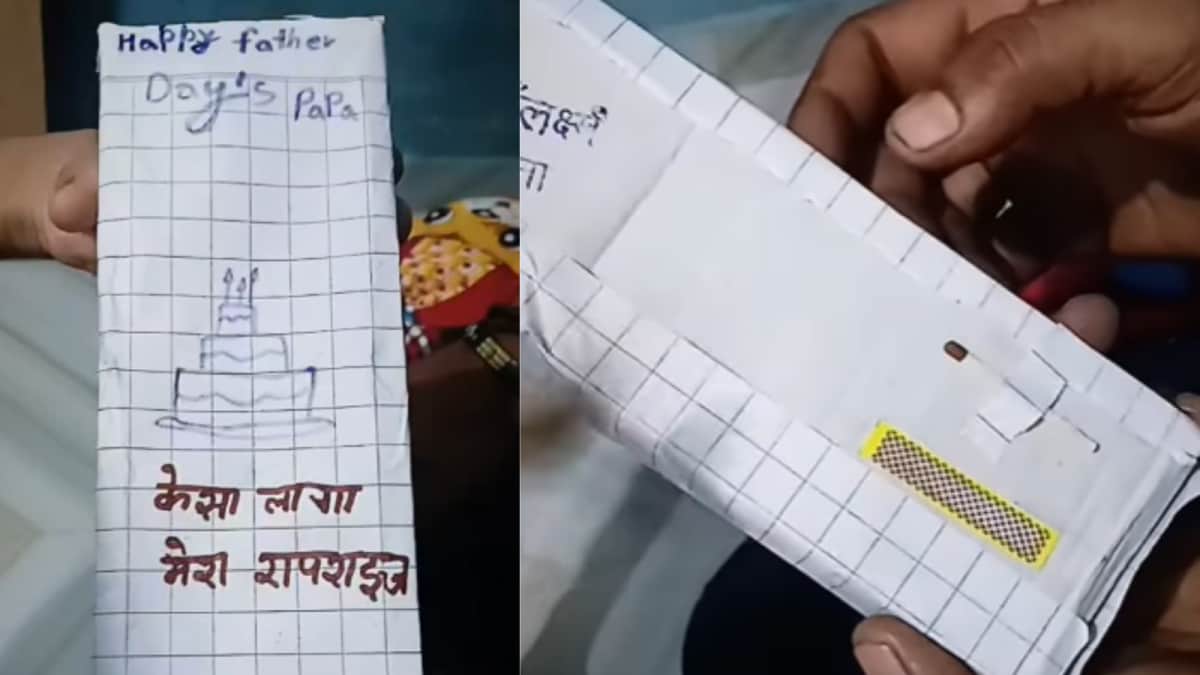 Happy father
Day's PaPa
केसा लागा
मेरा सपराइज
लक्ष्मी